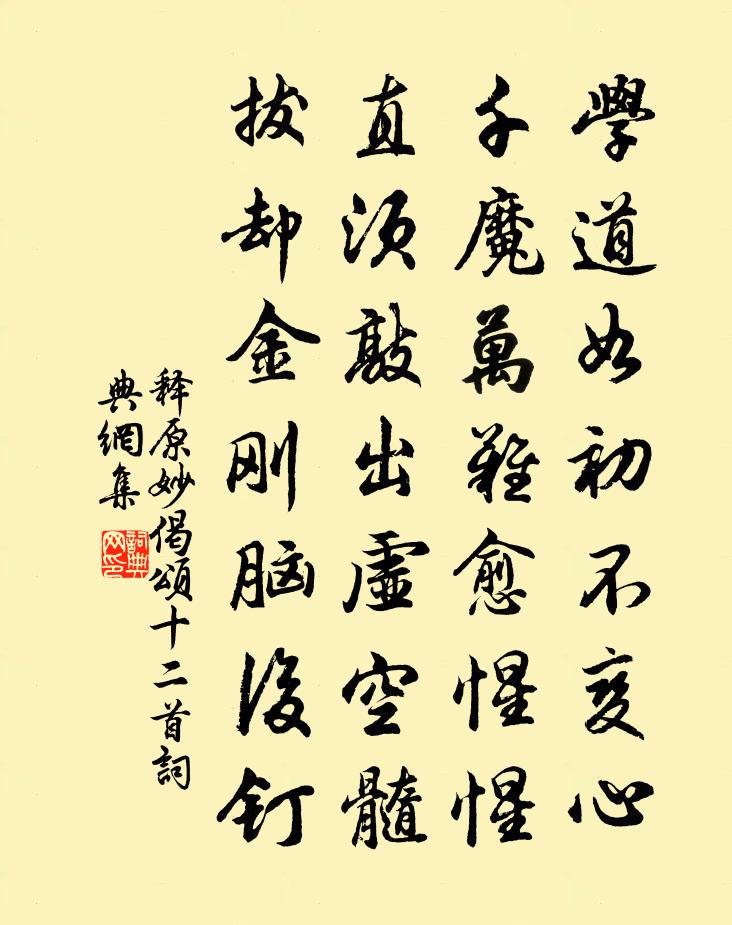 學道如初不变心
千魔萬難愈惺惺
直須敲出虛空髓
拔却金刚脑後钉
释原妙偈頌十二首詞
典網集
詞典网印